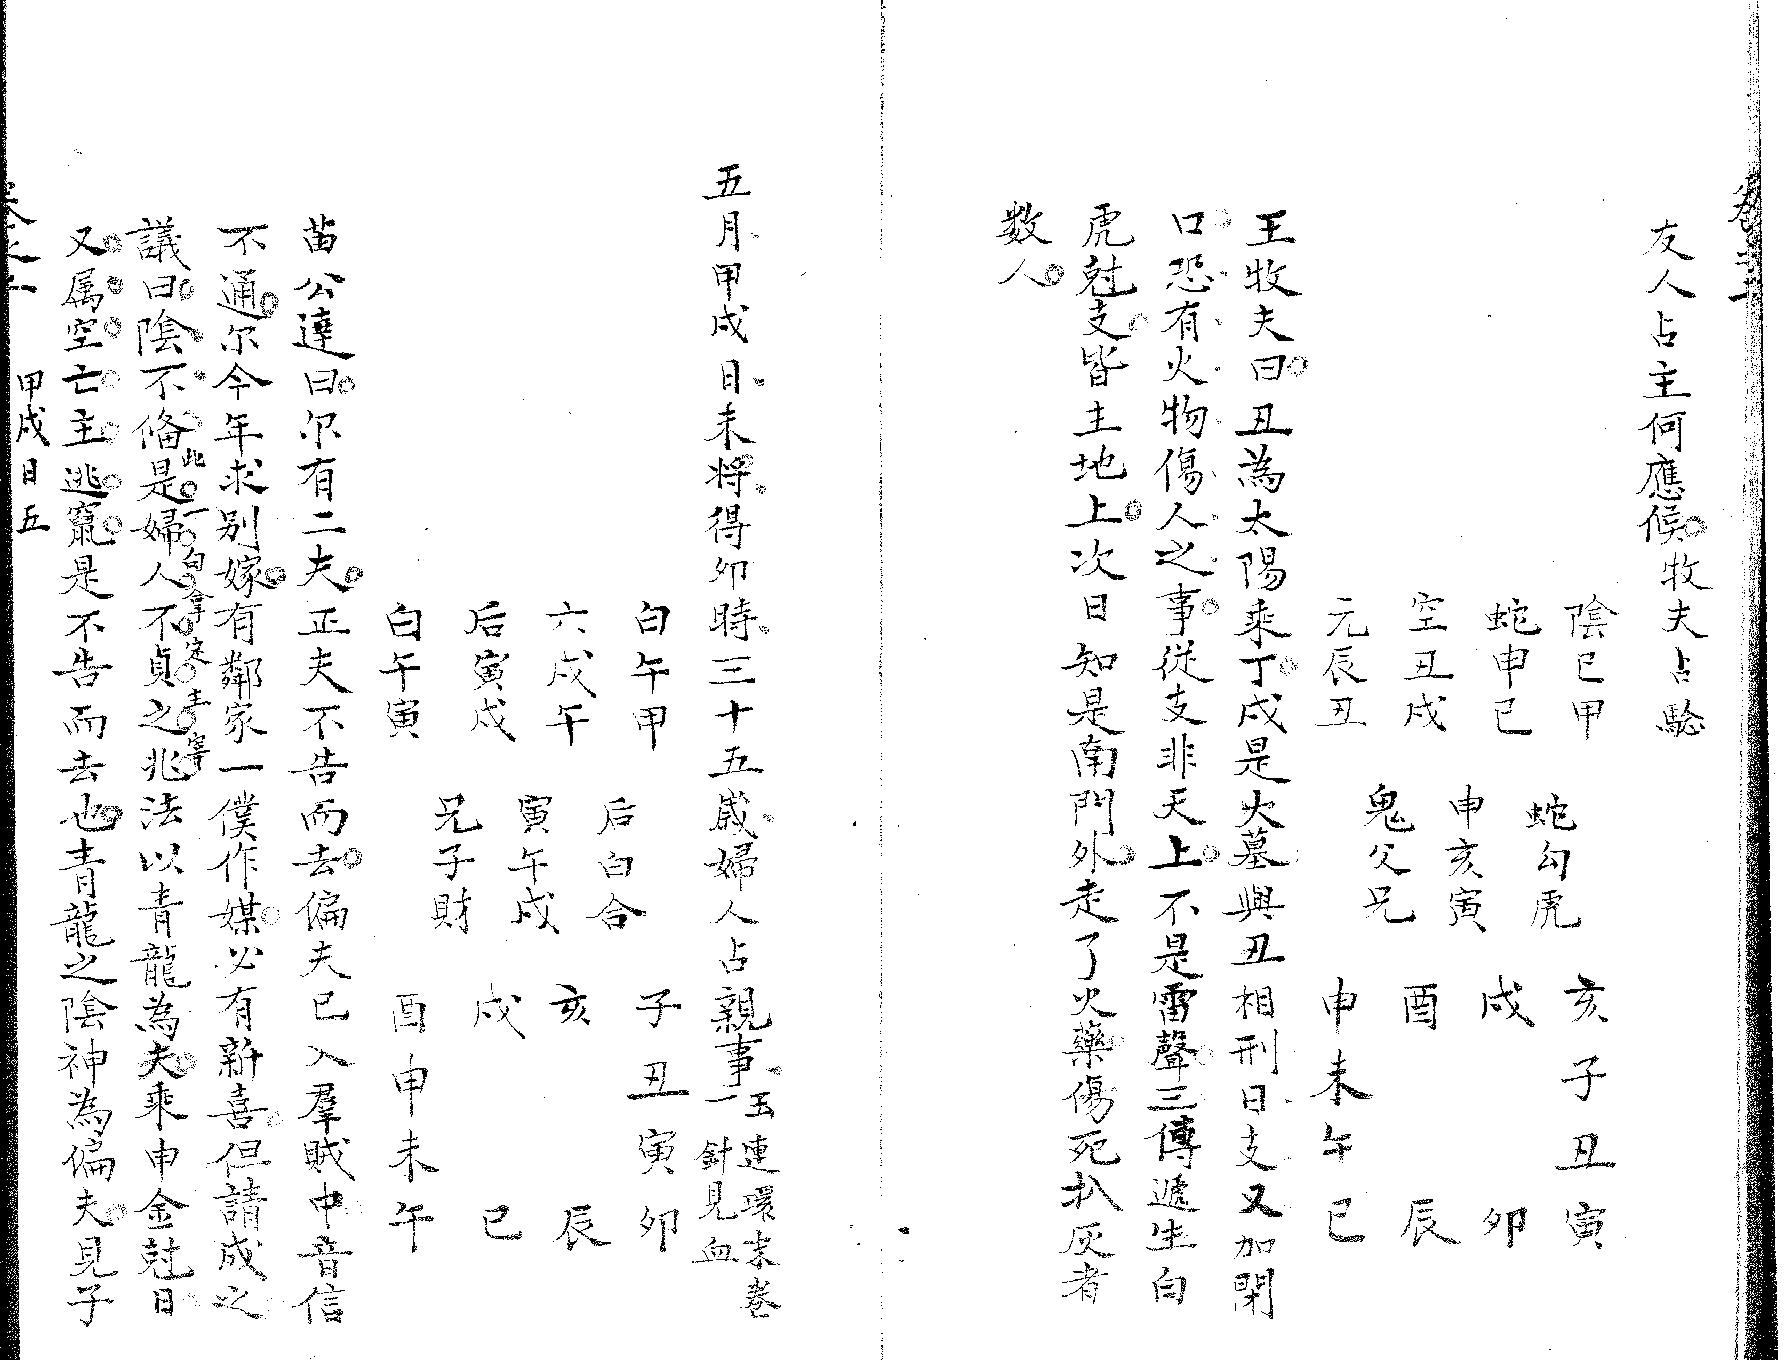 友人占主何應候牧夫占騐
陰巳甲
蛇申巳
空丑戌
元辰丑
蛇勾虎
申亥寅
鬼父兄
亥子丑寅
戌卯
酉辰
申未午巳
王牧夫曰丑為太陽乘丁戌是火墓與丑相刑日支又加閉
口恐有火物傷人之事從支非天上不是雷聲三傳遞生白
虎尅支皆主地上次日知是南門外走了火藥傷死扒灰者
數人
五月甲戌日未將得卯時三十五歲婦人占親事
玉連環末卷
一針見血
白午甲
六戌午
后寅戌
白午寅
后白合
寅午戌
兄子財
子丑寅卯
亥辰
戌巳
酉申未午
苗公達曰尔有二夫正夫不告而去偏夫已入羣賊中音信
不通尔今年求别嫁有鄰家一僕作媒必有新喜但請成之
議曰陰不俻是婦人不貞之兆法以青龍為夫乘申金尅日
又属空亡主逃竄是不告而去也青龍之陰神為偏夫見子
甲戌日五